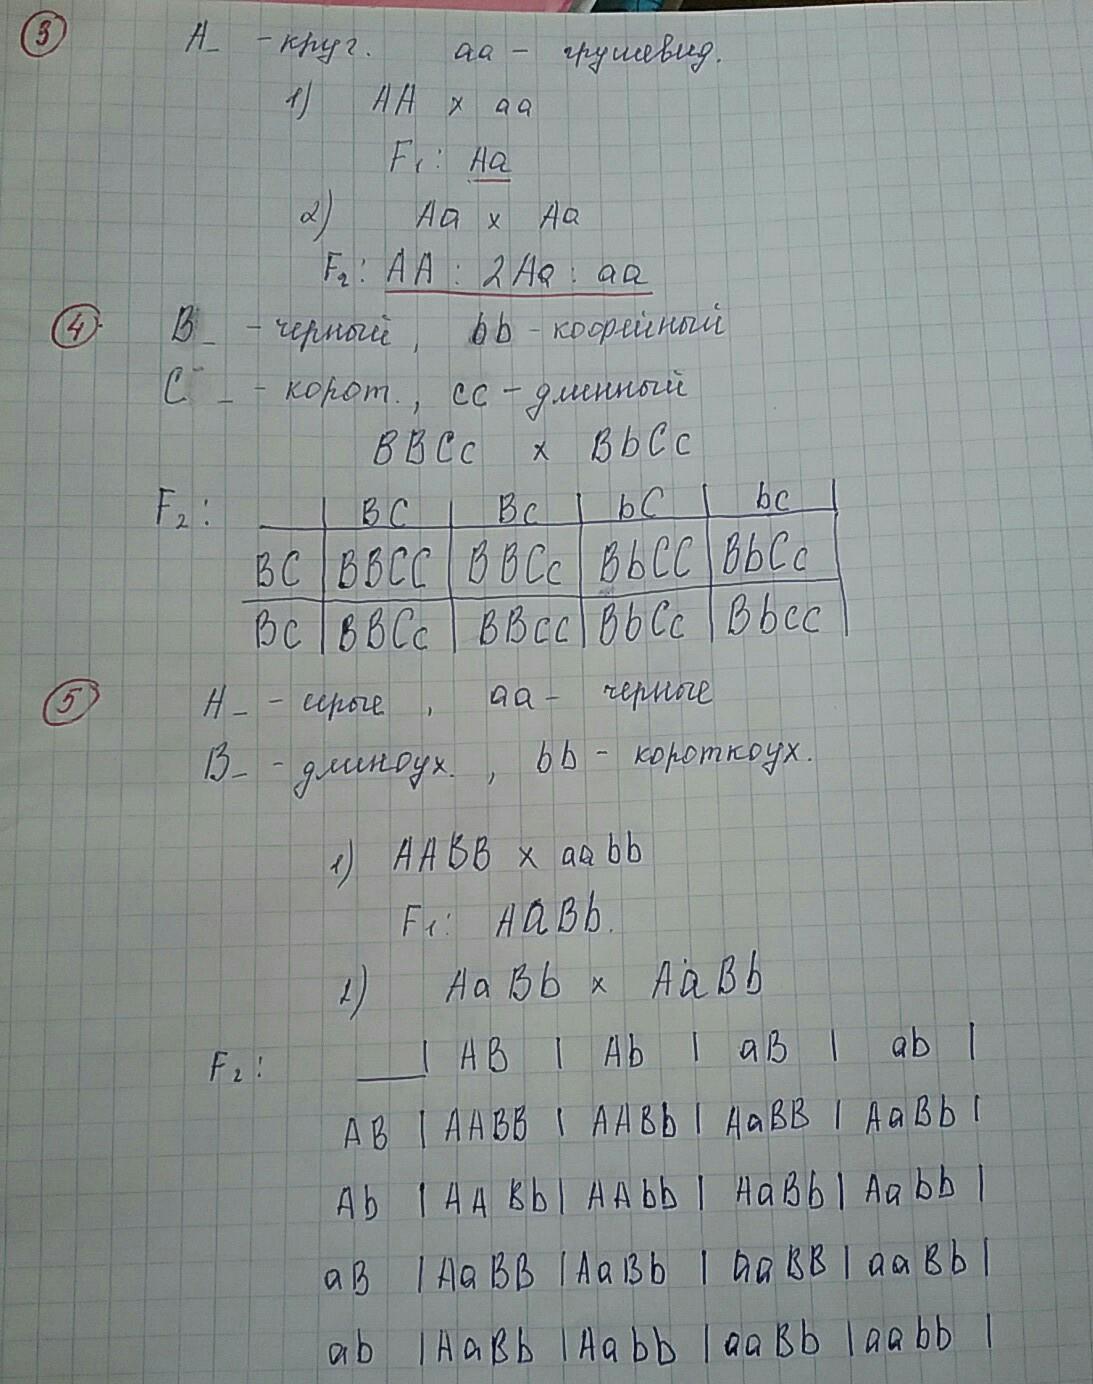 3 A_ - круг. аа - грушевид.
1) AA x aa
F₁: Aa
2) Aa x Aa
F₂: AA : 2Aa : aa
4 B_ - черный, bb - кофейный
C_ - корот., cc - длинный
BBCc x BbCc
F₂: | BC | Bc | bC | bc |
BC | BBCC | BBCc | BbCC | BbCc
Bc | BBCc | BBcc | BbCc | Bbcc |
5 A_ - серые, aa - черные
B_ - длиноух., bb - короткоух.
1) AABB x aabb
F₁: AaBb.
2) AaBb x AaBb
F₂: | AB | Ab | aB | ab |
AB | AABB | AABb | AaBB | AaBb |
Ab | AABb | AAbb | AaBb | Aabb |
aB | AaBB | AaBb | aaBB | aaBb |
ab | AaBb | Aabb | aaBb | aabb |